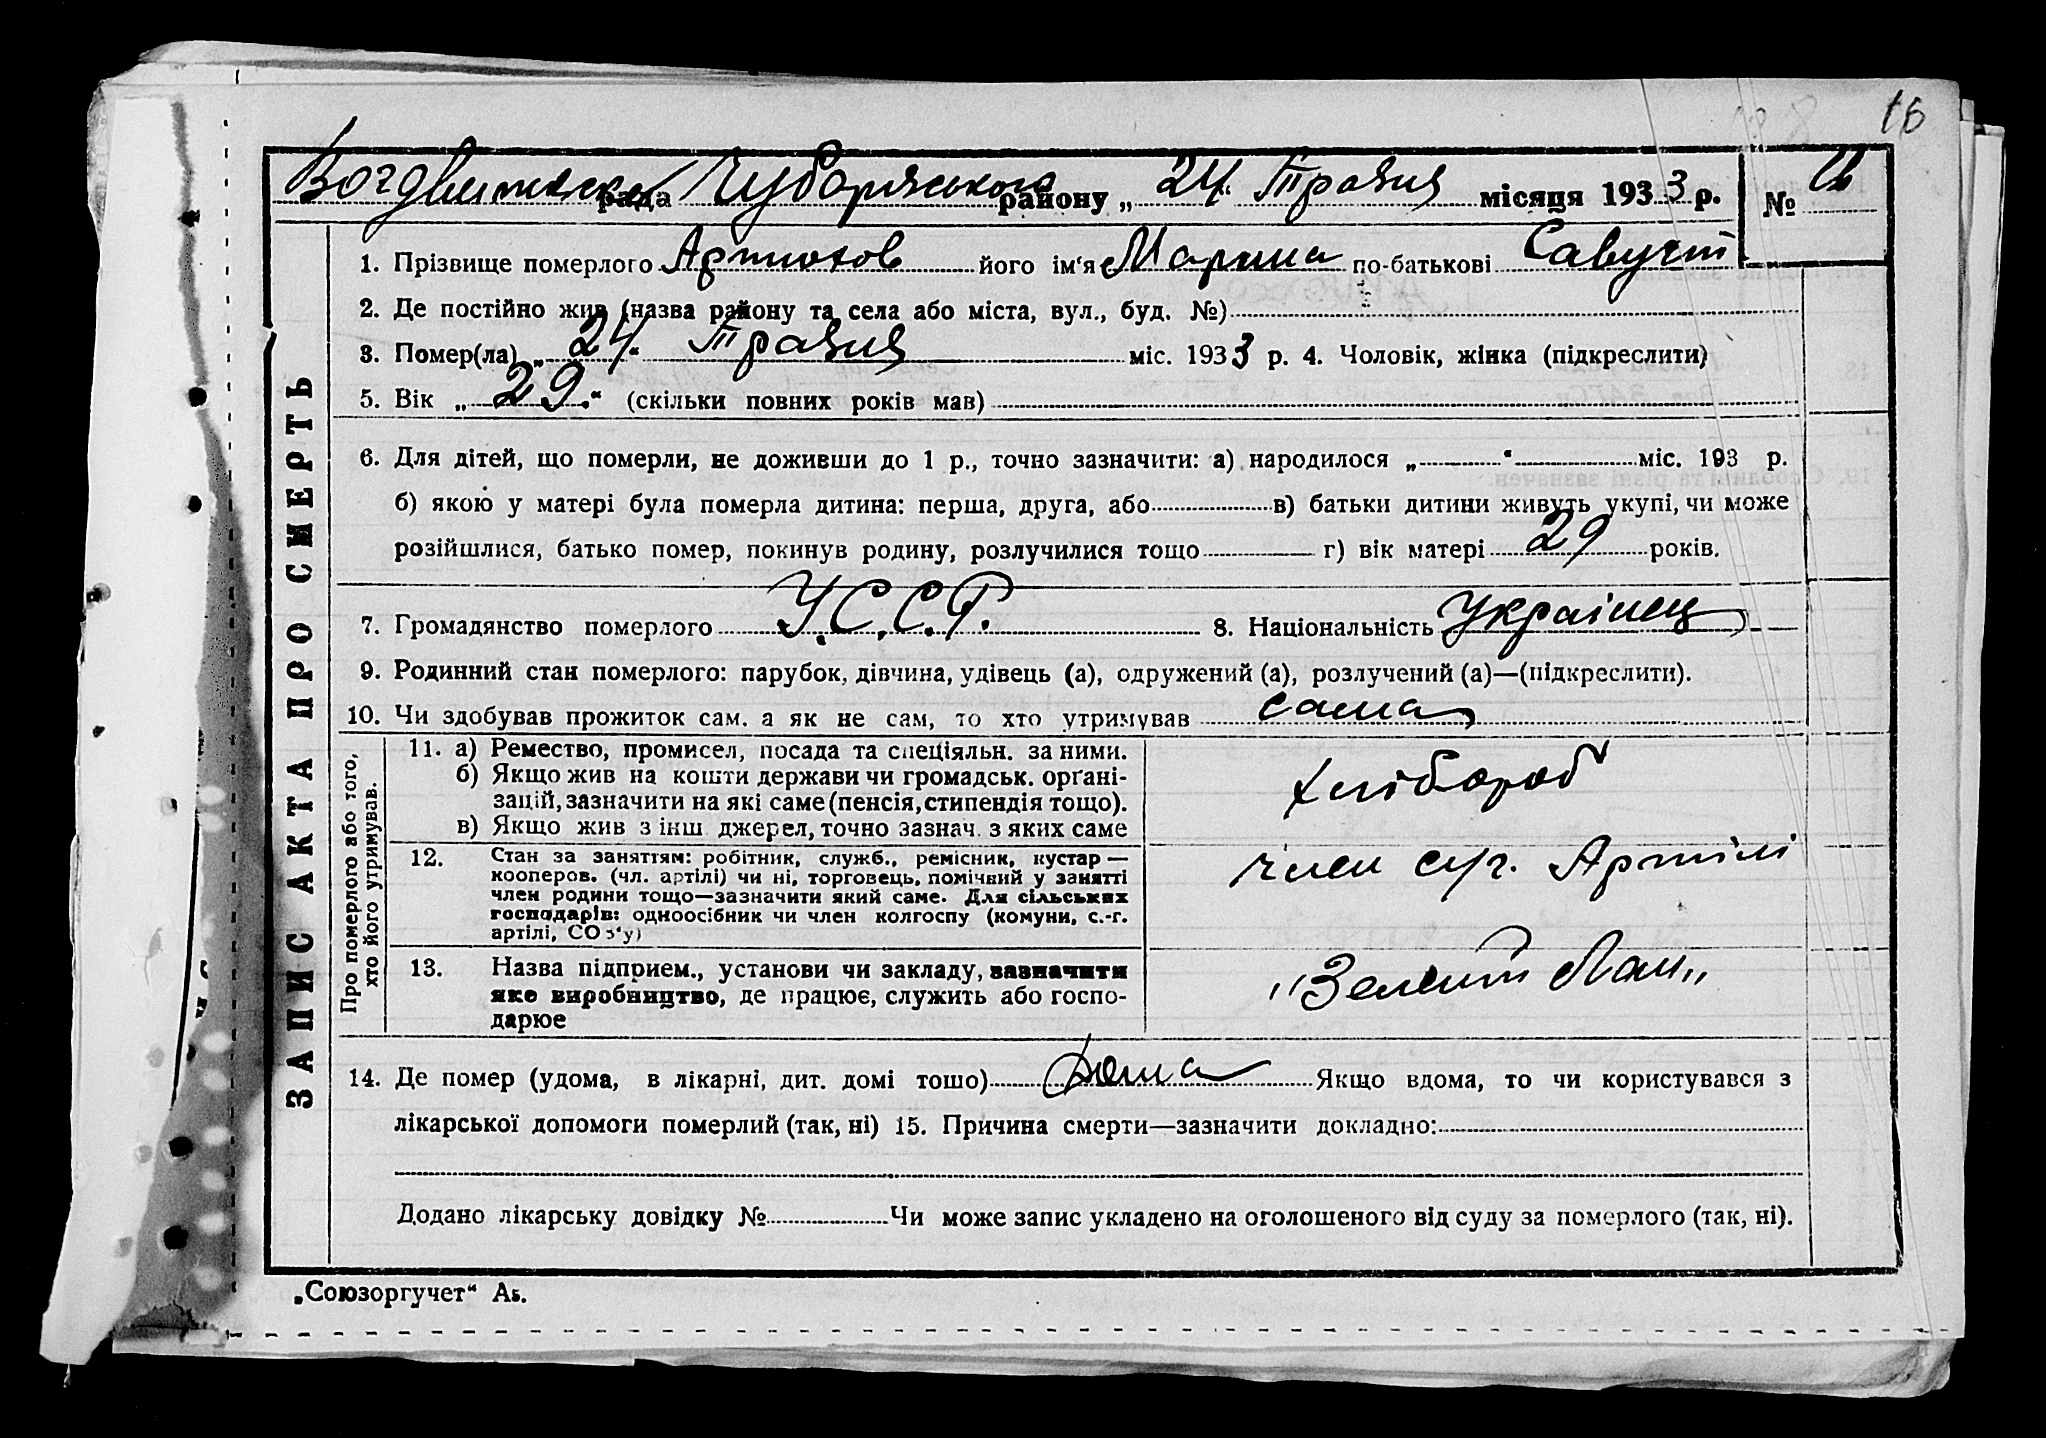 16
Воздвиженск рада Чубарівського району „ 24 “ Травня місяця 1933 р. №
1. Прізвище померлого Артюхов його ім'я Марина по-батькові
2. Де постійно жив (назва району та села або міста, вул., буд. №)
3. Помер(ла) „ 24 “ Травня міс. 1933 р. 4. Чоловік, жінка (підкреслити)
5. Вік „ 29 “ (скільки повних років мав)
6. Для дітей, що померли, не доживши до 1 р., точно зазначити: а) народилося „ “ міс. 193 р.
б) якою у матері була померла дитина: перша, друга, або в) батьки дитини живуть укупі, чи може
розійшлися, батько помер, покинув родину, розлучилися тощо г) вік матері 29 років.
7. Громадянство померлого У.С.С.Р. 8. Національність Українец
9. Родинний стан померлого: парубок, дівчина, удівець (а), одружений (а), розлучений (а)—(підкреслити).
10. Чи здобував прожиток сам, а як не сам, то хто утримував сама
ЗАПИС АКТА ПРО СМЕРТЬ
Про померлого або того,
хто його утримував.
11. а) Ремество, промисел, посада та спеціяльн. за ними.
б) Якщо жив на кошти держави чи громадськ. орґані-
зацій, зазначити на які саме (пенсія, стипендія тощо).
в) Якщо жив з інш джерел, точно зазнач. з яких саме
хлібороб
12. Стан за заняттям: робітник, служб., ремісник, кустар —
кооперов. (чл. артілі) чи ні, торговець, помічний у занятті
член родини тощо—зазначити який саме. Для сільських
господарів: одноосібник чи член колгоспу (комуни, с.-г.
артілі, СОЗ'у)
член с/г. Артілі
13. Назва підприєм., установи чи закладу, зазначити
яке виробництво, де працює, служить або госпо-
дарює
„Зелений Лан„
14. Де помер (удома, в лікарні, дит. домі тощо) Дома Якщо вдома, то чи користувався з
лікарської допомоги померлий (так, ні) 15. Причина смерти—зазначити докладно:
Додано лікарську довідку № Чи може запис укладено на оголошеного від суду за померлого (так, ні).
„Союзоргучет“ А5.